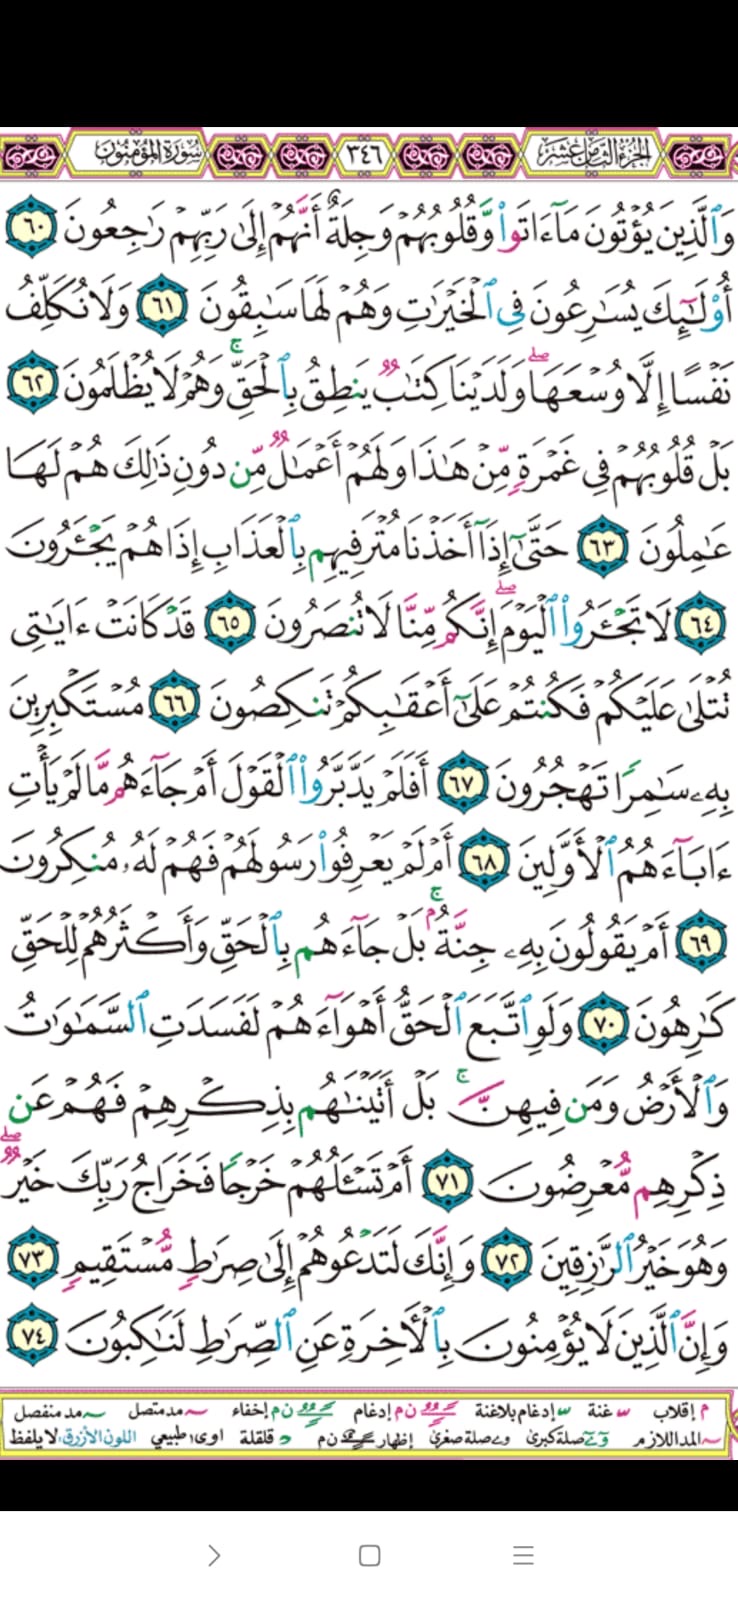 سورة المؤمنون ٣٤٦ الجزء الثامن عشر
وَٱلَّذِينَ يُؤْتُونَ مَآ ءَاتَوا۟ وَّقُلُوبُهُمْ وَجِلَةٌ أَنَّهُمْ إِلَىٰ رَبِّهِمْ رَٰجِعُونَ ٦٠
أُو۟لَٰٓئِكَ يُسَٰرِعُونَ فِى ٱلْخَيْرَٰتِ وَهُمْ لَهَا سَٰبِقُونَ ٦١ وَلَا نُكَلِّفُ
نَفْسًا إِلَّا وُسْعَهَا ۖ وَلَدَيْنَا كِتَٰبٌ يَنطِقُ بِٱلْحَقِّ ۚ وَهُمْ لَا يُظْلَمُونَ ٦٢
بَلْ قُلُوبُهُمْ فِى غَمْرَةٍ مِّنْ هَٰذَا وَلَهُمْ أَعْمَٰلٌ مِّن دُونِ ذَٰلِكَ هُمْ لَهَا
عَٰمِلُونَ ٦٣ حَتَّىٰٓ إِذَآ أَخَذْنَا مُتْرَفِيهِم بِٱلْعَذَابِ إِذَا هُمْ يَجْـَٔرُونَ
٦٤ لَا تَجْـَٔرُوا۟ ٱلْيَوْمَ ۖ إِنَّكُم مِّنَّا لَا تُنصَرُونَ ٦٥ قَدْ كَانَتْ ءَايَٰتِى
تُتْلَىٰ عَلَيْكُمْ فَكُنتُمْ عَلَىٰٓ أَعْقَٰبِكُمْ تَنكِصُونَ ٦٦ مُسْتَكْبِرِينَ
بِهِۦ سَٰمِرًا تَهْجُرُونَ ٦٧ أَفَلَمْ يَدَّبَّرُوا۟ ٱلْقَوْلَ أَمْ جَآءَهُم مَّا لَمْ يَأْتِ
ءَابَآءَهُمُ ٱلْأَوَّلِينَ ٦٨ أَمْ لَمْ يَعْرِفُوا۟ رَسُولَهُمْ فَهُمْ لَهُۥ مُنكِرُونَ
٦٩ أَمْ يَقُولُونَ بِهِۦ جِنَّةٌۢ ۚ بَلْ جَآءَهُم بِٱلْحَقِّ وَأَكْثَرُهُمْ لِلْحَقِّ
كَٰرِهُونَ ٧٠ وَلَوِ ٱتَّبَعَ ٱلْحَقُّ أَهْوَآءَهُمْ لَفَسَدَتِ ٱلسَّمَٰوَٰتُ
وَٱلْأَرْضُ وَمَن فِيهِنَّ ۚ بَلْ أَتَيْنَٰهُم بِذِكْرِهِمْ فَهُمْ عَن
ذِكْرِهِم مُّعْرِضُونَ ٧١ أَمْ تَسْـَٔلُهُمْ خَرْجًا فَخَرَاجُ رَبِّكَ خَيْرٌ ۖ
وَهُوَ خَيْرُ ٱلرَّٰزِقِينَ ٧٢ وَإِنَّكَ لَتَدْعُوهُمْ إِلَىٰ صِرَٰطٍ مُّسْتَقِيمٍ ٧٣
وَإِنَّ ٱلَّذِينَ لَا يُؤْمِنُونَ بِٱلْأَخِرَةِ عَنِ ٱلصِّرَٰطِ لَنَٰكِبُونَ ٧٤
م إقلاب غنة إدغام بلاغنة ن م إدغام ن م إخفاء مد متصل مد منفصل
المد اللازم صلة كبرى صلة صغرى إظهار ن م قلقلة اوى طبيعي اللون الأزرق:لا يلفظ